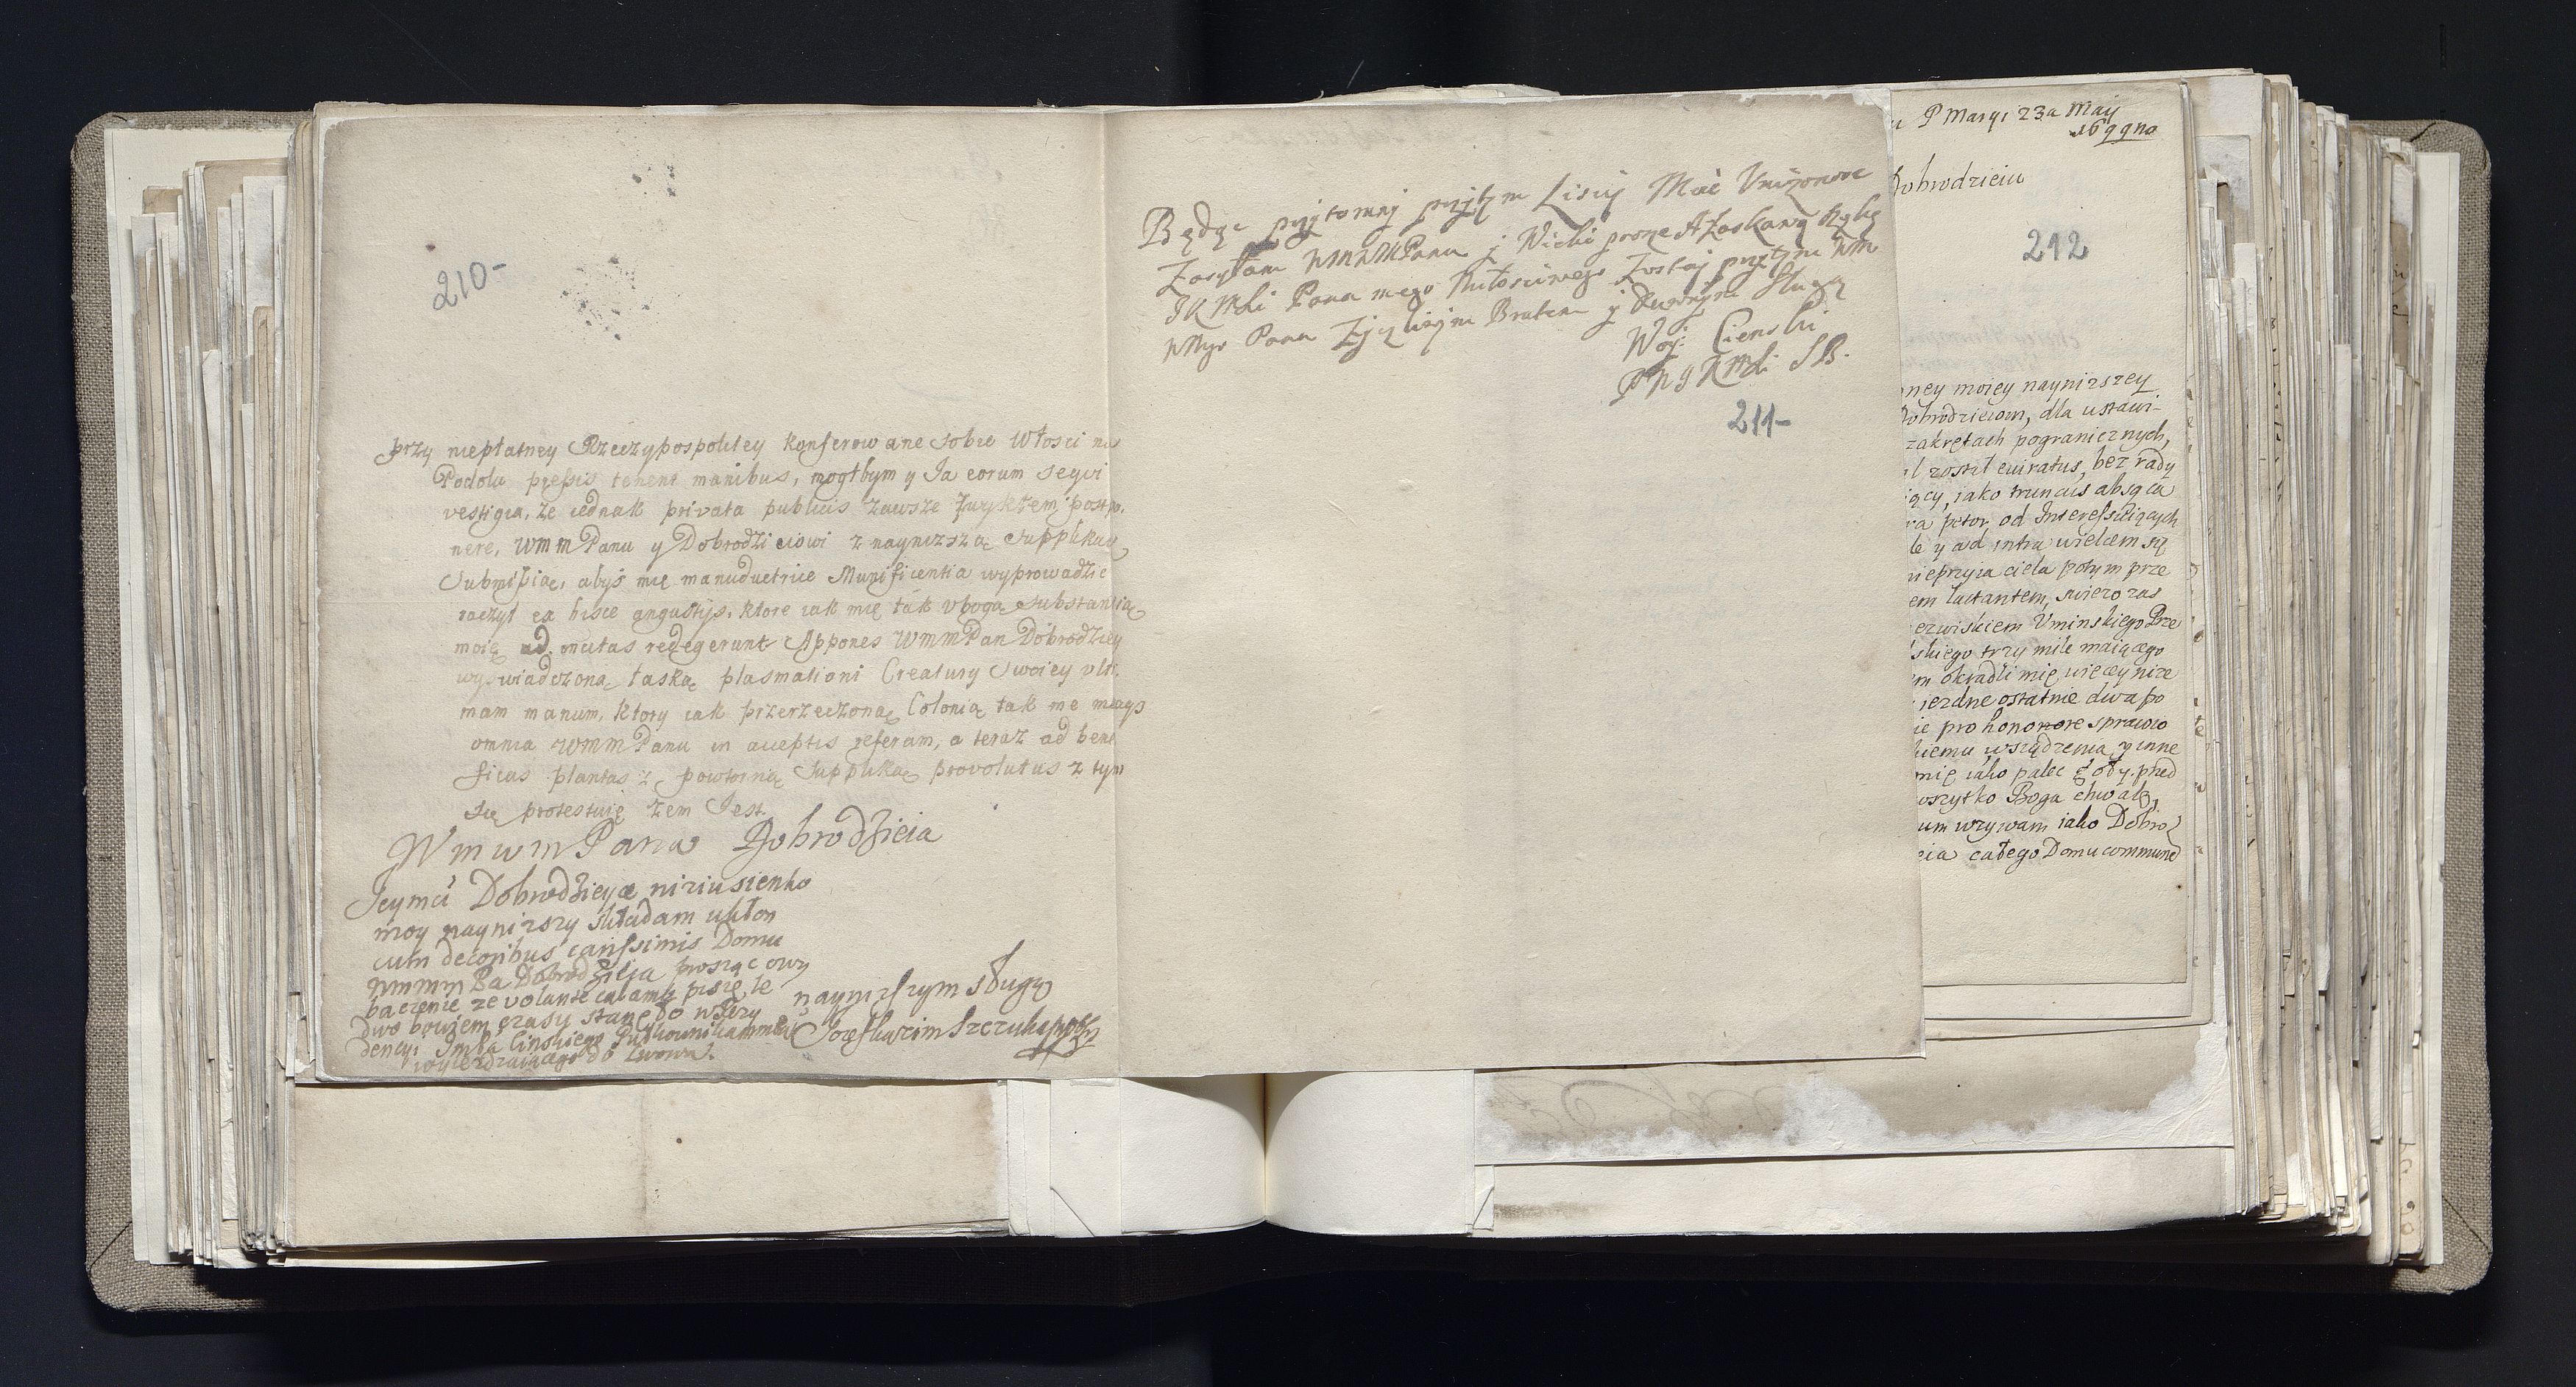 210-
przy niepłatney Rzeczypospolitey konferowane sobie Włosci na
Podolu pressis tenent manibus, mogłbym y Ja eorum sequi
vestigia, że iednak privata publicis zawsze zwykłem postpo,
nere, WmmPanu y Dobrodzieiowi z naynizszą supplikuię
Submissią, abyś mię manuductrice Munificentia wyprowadzic
raczył ex hisce angustijs, ktore iak mię tak vbogą substantią
moię ad incitas redegerunt Appones WmmPan Dobrodziey
wyswiadczoną łaską plasmationi Creatury swoiey vlti,
mam manum, ktory iak przerzeczoną Colonią tak me meaqs
omnia WmmPanu in acceptis referam, a teraz ad bene
ficas plantas z powtorną supplikąę provolutus z tym
się protestuię żem Jest.
WmwmPana Dobrodzieia
Jeymci Dobrodzieyce niziusienko
moy naynizszy składam ukłon
cum decoribus carissimis Domu
wmmm Pa Dobrodzieja prosząc o wy
baczenie ze volante calamo piszę, le
dwo bowiem czasu stanęło
dencyi Jmpa Cinskiego Pułkownika
wyiezdzaiącego do Lwowa.
naynizszym sługą
Jozef Kazim Szczuka
Będąc przytomny przytym Lisciy Moie Unizonosc
Zasyłam WMWMPanu y Wielce prosze A Łaskawą
JKMSci Pana mego Miłosciwego Zostaj przytym WM
WMgo Pana Zyczliwym Bratem y Sługą
Woj: Cienski
P P J K MSci SB.
211-
P Maryi 23a Maij
1699no
Dobrodzieiu
212
ney moiey naynizszey
Dobrodzieiom, dla ustawi-
zakrętach pogranicznych,
l został euiratus, bez rady
iący, iako truncus absq ca
petor od Interessuiących
le y ad intra wielcem się
nieprzyiaciela potym prze
em lactantem, swiezo zas
ezwiskiem Uminskiego Prze
skiego trzy mile maiącego
m okradli mię więcey nize
iezdne ostatnie dwa po
ie pro honore sprawio
kiemu, wsządzenia y inne
mię iako palec goły. pred
wszytko Boga chwalę,
um wzywam iako Dobro
eia całego Domu commune